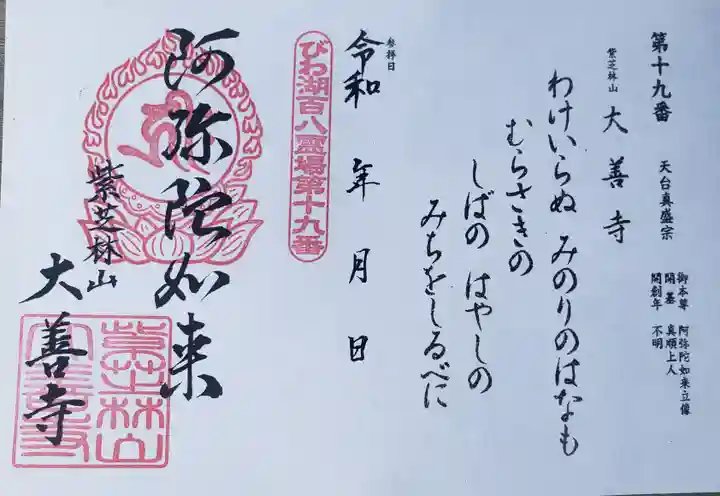 第十九番　天台真盛宗
御本尊　阿弥陀如来立像
開基　真順上人
開創年　不明
紫芝林山　大善寺
わけいらぬ　みのりのはなも
むらさきの
しばの　はやしの
みちをしるべに
参拝日
令和　年　月　日
びわ湖百八霊場第十九番
阿弥陀如来
紫芝林山
大善寺
紫芝林山